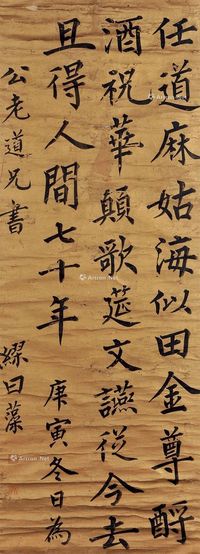 任道麻姑海似田金尊酹
酒祝華顛歌筵文讌從今去
且得人間七十年
庚寅冬日為
公老道兄書
繆曰藻